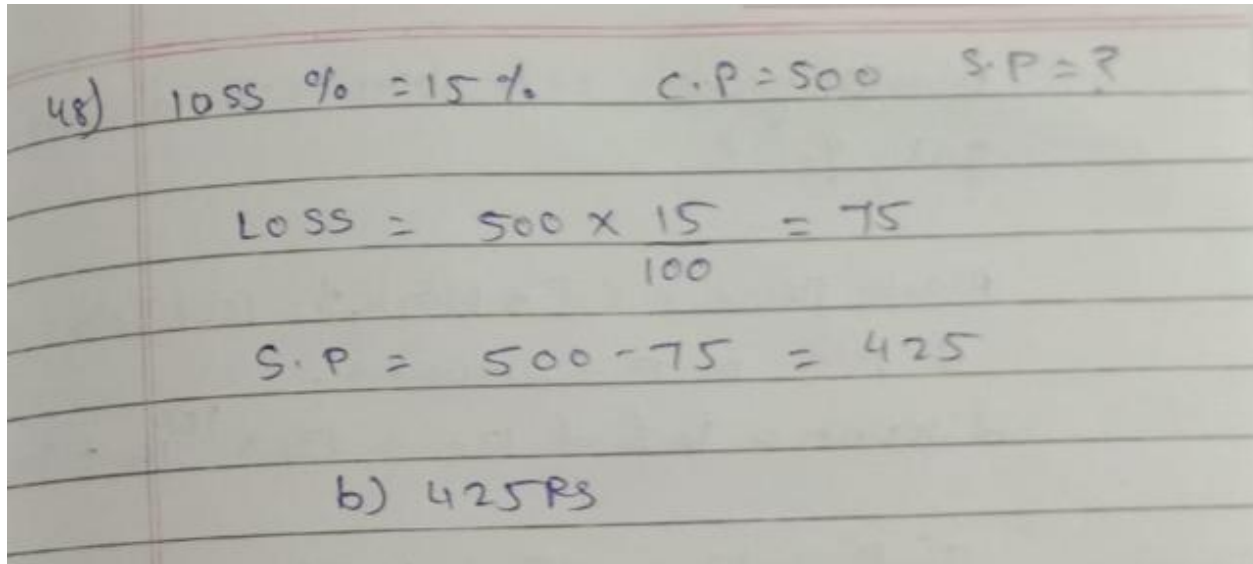 48) loss % = 15 % C.P = 500 S.P = ?
LOSS = 500 x 15/100 = 75
S.P = 500 - 75 = 425
b) 425 RS